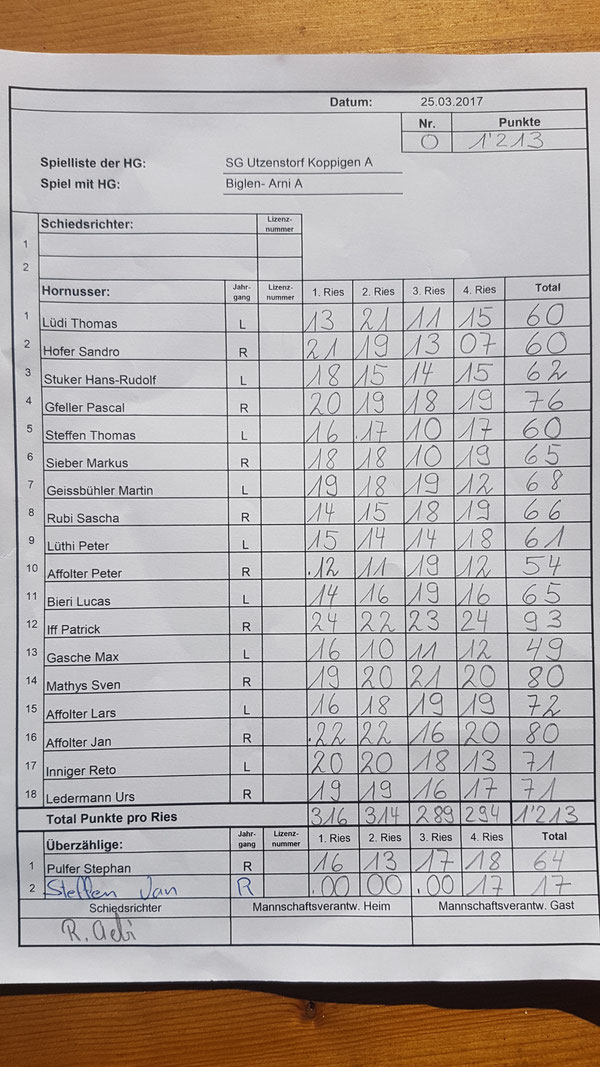 Datum: 25.03.2017
Nr. Punkte
0 1'213
Spielliste der HG: SG Utzenstorf Koppigen A
Spiel mit HG: Biglen- Arni A
Schiedsrichter: Lizenz-nummer
1
2
Hornusser: Jahr-gang Lizenz-nummer 1. Ries 2. Ries 3. Ries 4. Ries Total
1 Lüdi Thomas L 13 21 11 15 60
2 Hofer Sandro R 21 19 13 07 60
3 Stuker Hans-Rudolf L 18 15 14 15 62
4 Gfeller Pascal R 20 19 18 19 76
5 Steffen Thomas L 16 17 10 17 60
6 Sieber Markus R 18 18 10 19 65
7 Geissbühler Martin L 19 18 19 12 68
8 Rubi Sascha R 14 15 18 19 66
9 Lüthi Peter L 15 14 14 18 61
10 Affolter Peter R 12 11 19 12 54
11 Bieri Lucas L 14 16 19 16 65
12 Iff Patrick R 24 22 23 24 93
13 Gasche Max L 16 10 11 12 49
14 Mathys Sven R 19 20 21 20 80
15 Affolter Lars L 16 18 19 19 72
16 Affolter Jan R 22 22 16 20 80
17 Inniger Reto L 20 20 18 13 71
18 Ledermann Urs R 19 19 16 17 71
Total Punkte pro Ries 316 314 289 294 1'213
Überzählige: Jahr-gang Lizenz-nummer 1. Ries 2. Ries 3. Ries 4. Ries Total
1 Pulfer Stephan R 16 13 17 18 64
2 Steffen Jan R 00 00 00 17 17
Schiedsrichter Mannschaftsverantw. Heim Mannschaftsverantw. Gast
R. Aebi